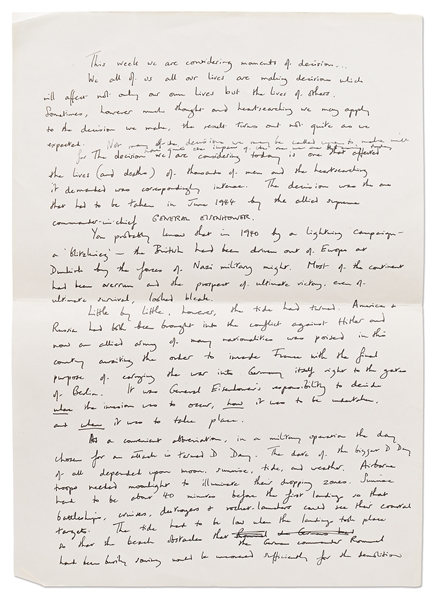 This week we are considering moments of decision...
We all of us all our lives are making decisions which
will affect not only our own lives but the lives of others.
Sometimes, however much thought and heartsearching we may apply
to the decision we make, the result turns out not quite as we
expected. Nor may the decisions we may be called upon to make
for The decision we are considering today is one that affected
the lives (and deaths) of thousands of men and the heartsearching
it demanded was correspondingly intense. The decision was the one
that had to be taken in June 1944 by the allied supreme
commander-in-chief GENERAL EISENHOWER.
You probably know that in 1940 by a lightning campaign -
a 'blitzkrieg' - the British had been driven out of Europe at
Dunkirk by the forces of Nazi military might. Most of the continent
had been overrun and the prospect of ultimate victory, even of
ultimate survival, looked bleak.
Little by little, however, the tide had turned. America &
Russia had both been brought into the conflict against Hitler and
now an allied army of many nationalities was poised in this
country awaiting the order to invade France with the final
purpose of carrying the war into Germany itself, right to the gates
of Berlin. It was General Eisenhower's responsibility to decide
where the invasion was to occur, how it was to be undertaken,
and when it was to take place.
As a convenient abbreviation, in a military operation the day
chosen for an attack is termed D Day. The date of the biggest D Day
of all depended upon moon, sunrise, tide, and weather. Airborne
troops needed moonlight to illuminate their dropping zones. Sunrise
had to be about 40 minutes before the first landing so that
battleships, cruisers, destroyers & rocket-launchers could see their coastal
targets. The tide had to be low when the landings took place
so that the beach obstacles that the German commander Rommel
had been busily sowing would be uncovered sufficiently for the demolition